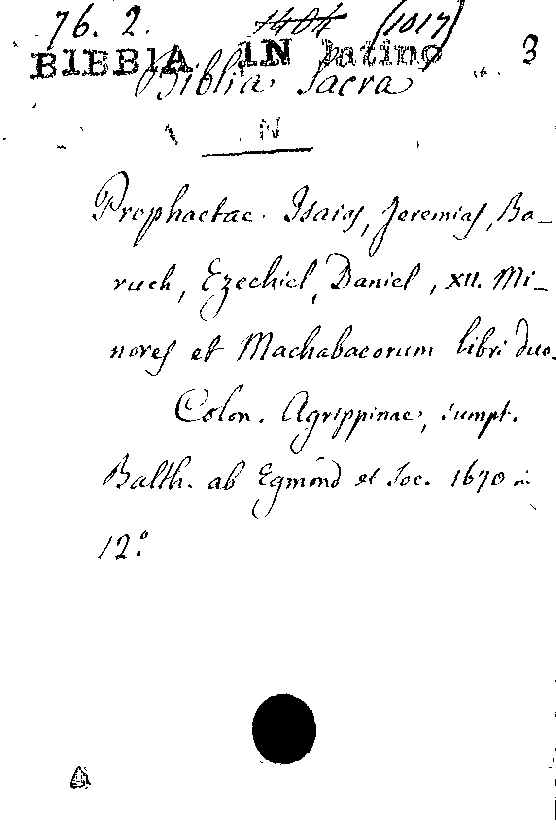 76. 2. 1404 (1017)
BIBBIA IN latino 3
Biblia Sacra
N
Prophaetae. Isaias, Jeremias, Ba-
ruch, Ezechiel, Daniel, XII. Mi-
nores et Machabaeorum libri duo.
Colon. Agrippinae, sumpt.
Balth. ab Egmond et Soc. 1670 in
12.°